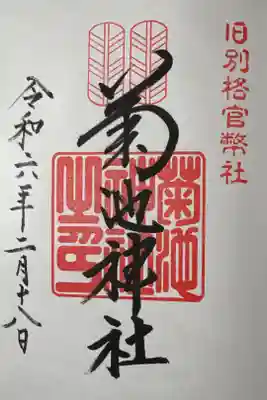 旧別格官幣社
菊池神社
菊池神社之印
令和六年二月十八日